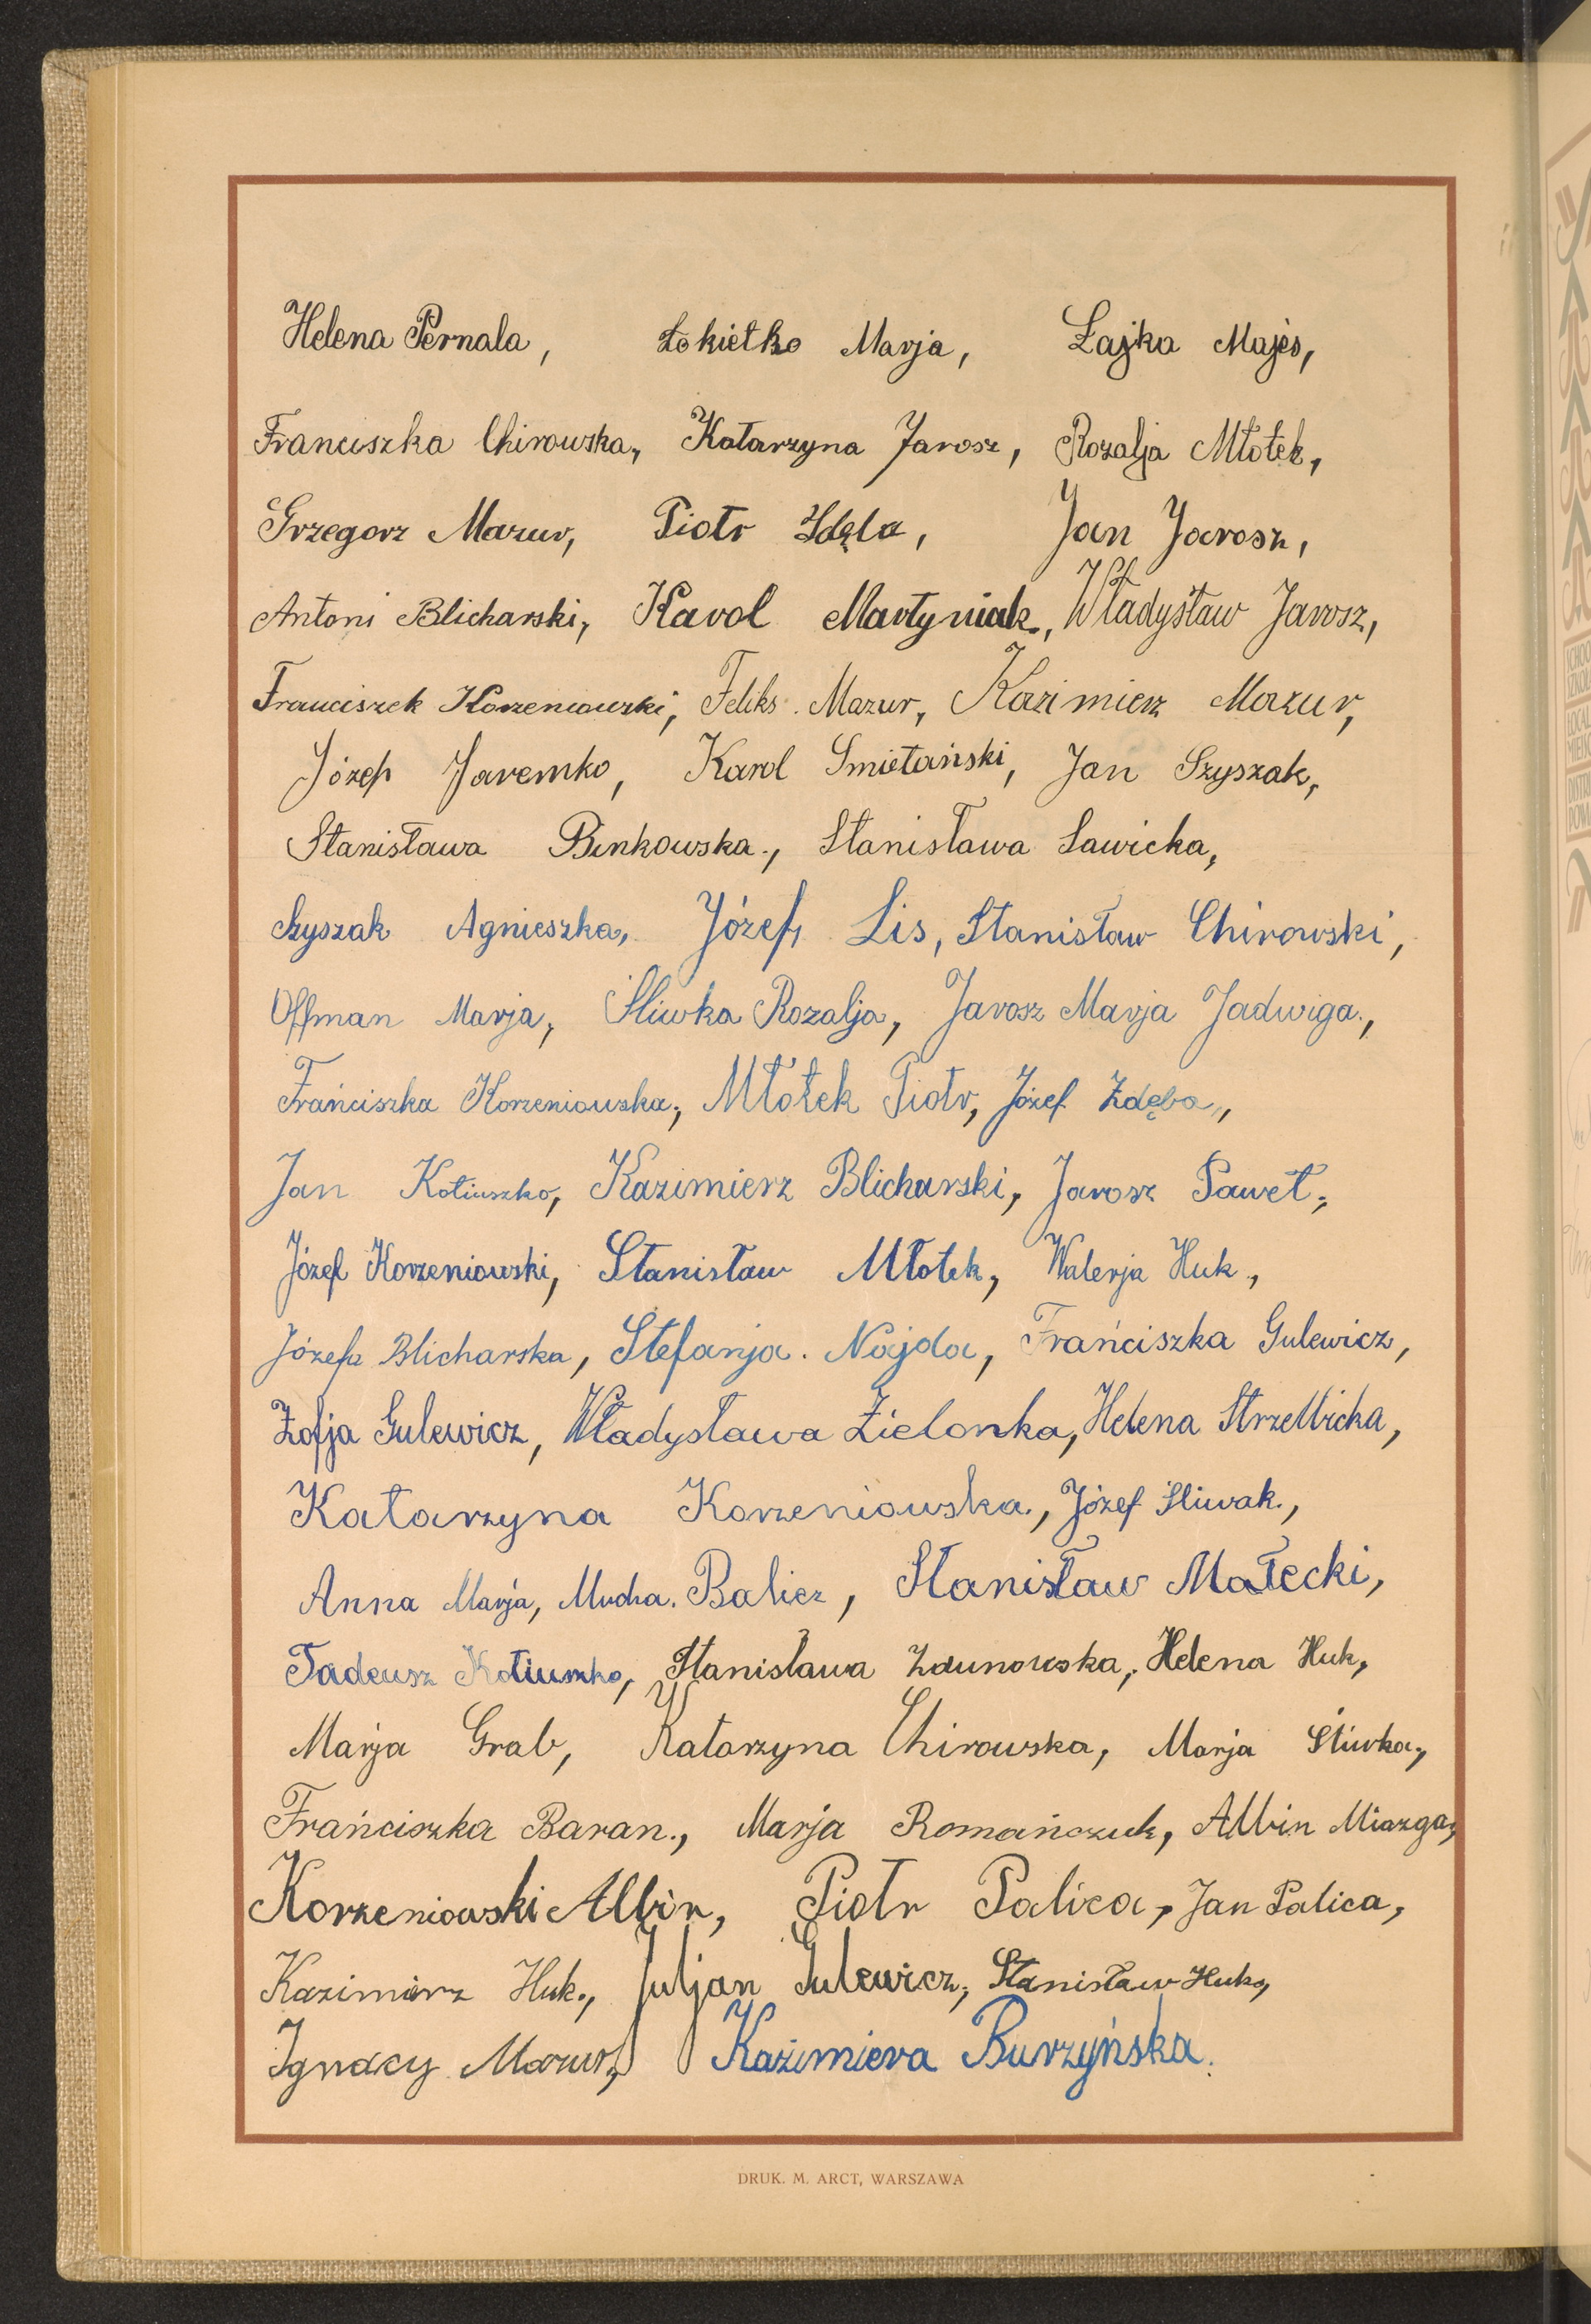 Helena Pernala, Łokietko Marja, Łajka Majes,
Franciszka Chirowska, Katarzyna Jarosz, Rozalja Młotek,
Grzegorz Mazur, Piotr Jan Jarosz,
Antoni Blicharski, Karol Martyniak, Władysław Jarosz,
Franciszek Korzeniowski, Feliks Mazur, Kazimierz Mazur,
Józef Jaremko, Karol Smietański, Jan Szyszak,
Stanisława Binkowska, Stanisława Sawicka,
Szyszak Agnieszka, Józef Lis, Stanisław Chirowski,
Offman Marja, Śliwka Rozalja, Jarosz Marja Jadwiga,
Frańciszka Korzeniowska, Młotek Piotr, Józef Zdęba,
Jan Kotiuszko, Kazimierz Blicharski, Jarosz Paweł,
Józef Korzeniowski, Stanisław Młotek, Walerja Huk,
Józefa Blicharska, Stefanja Najda, Frańciszka Gulewicz,
Zofja Gulewicz, Władysława Zielonka, Helena Strzelbicka,
Katarzyna Korzeniowska, Józef Śliwak,
Anna Marja, Mucha. Balicz, Stanisław Małecki,
Tadeusz Kotiuszko, Stanisława Zdunowska, Helena Huk,
Marja Grab, Katarzyna Chirowska, Marja Śliwka,
Frańciszka Baran, Marja Romańczuk, Albin Miazga,
Korzeniowski Albin, Piotr Palica, Jan Palica,
Kazimierz Huk, Juljan Gulewicz, Stanisław Huk,
Ignacy Mazur, Kazimiera Burzyńska.
DRUK. M. ARCT, WARSZAWA